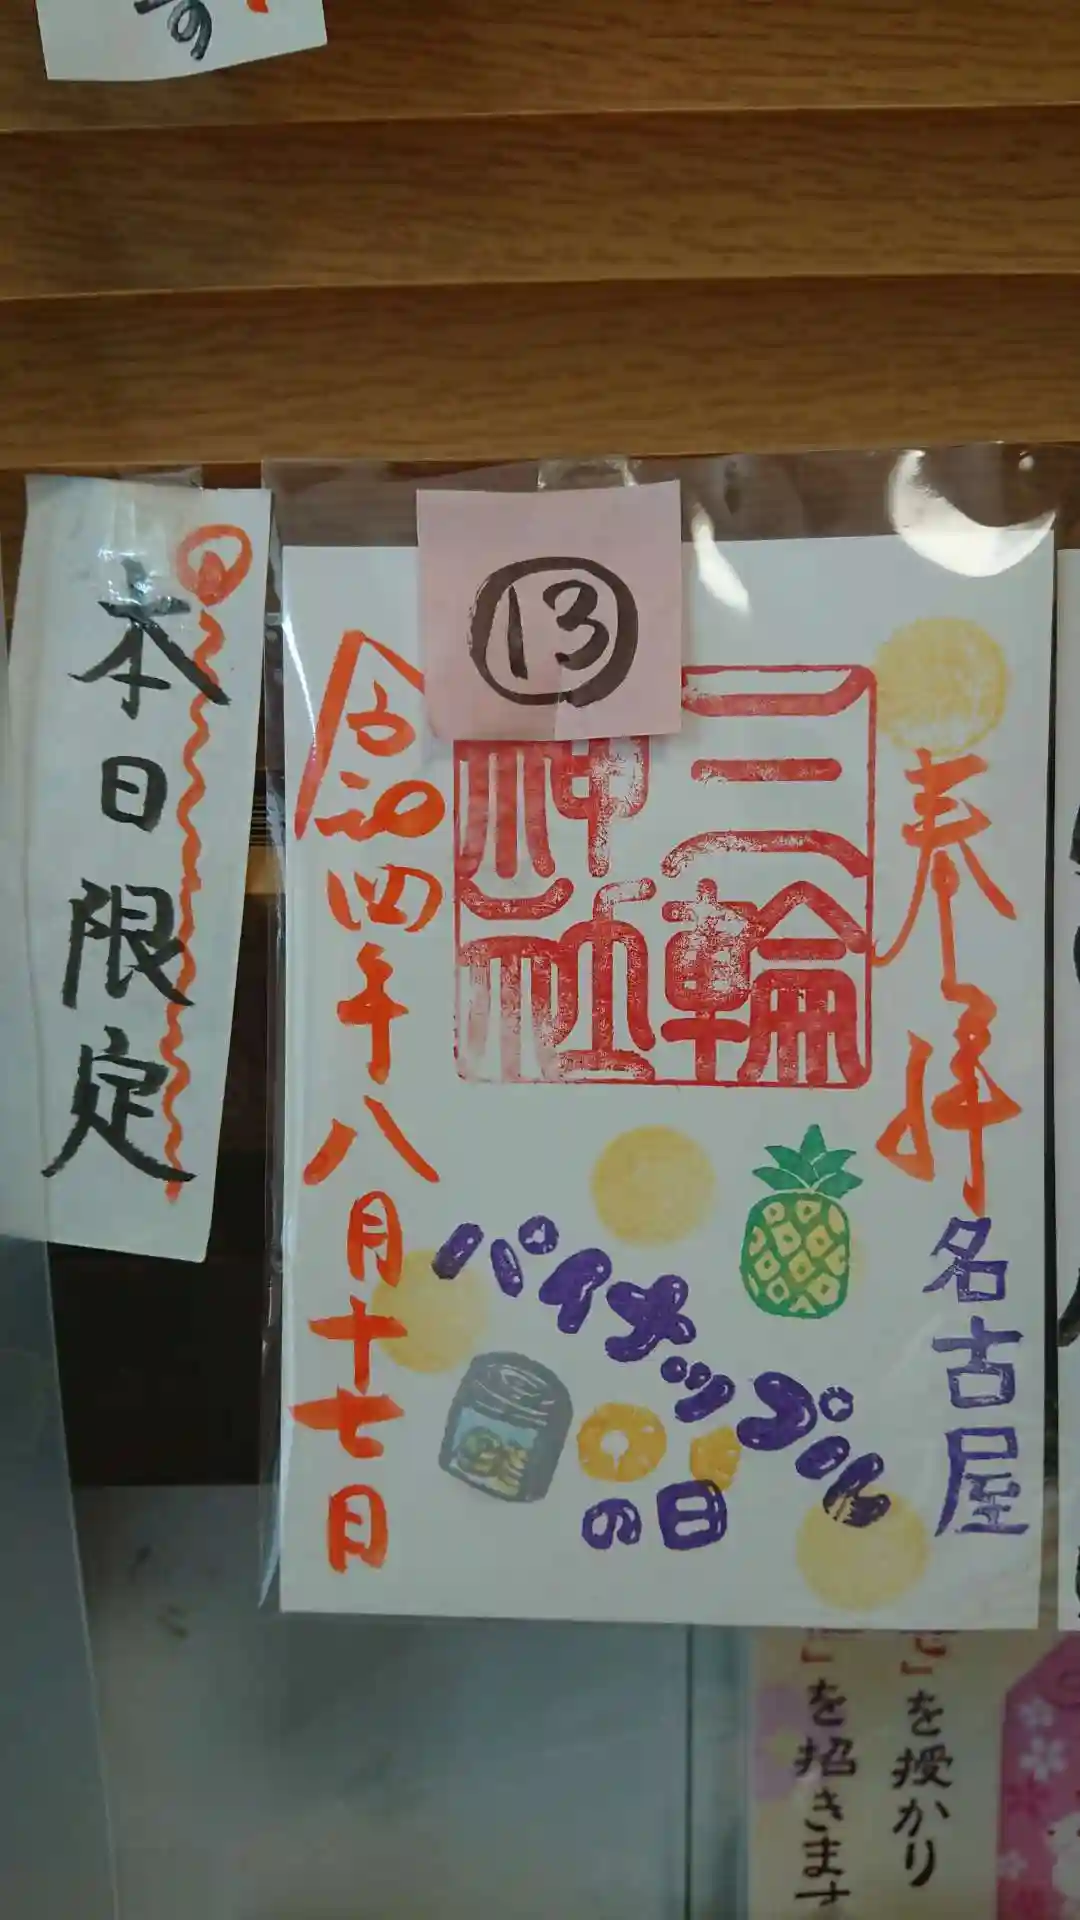 本日限定
13
奉拝
名古屋
三輪
神社
パイナップル
の日
令和四年八月十七日
を授かり
を招きます